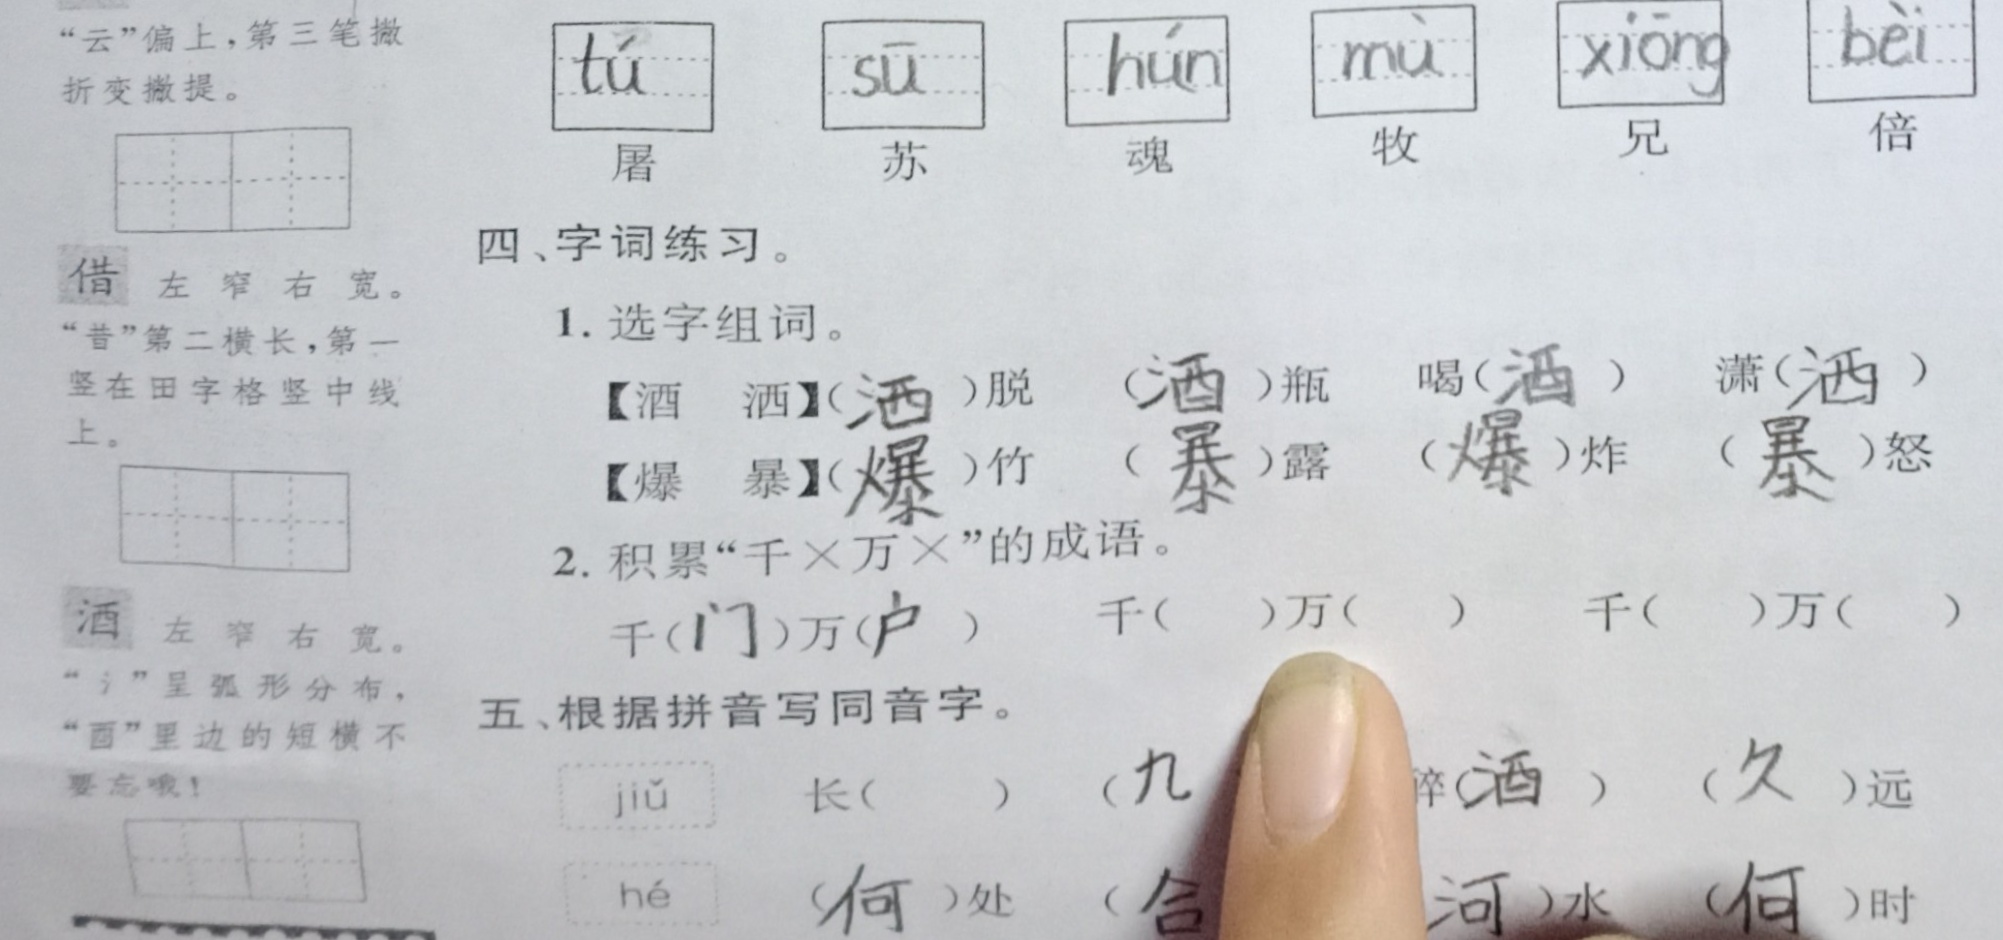 “云”偏上，第三笔撇
折变撇提。
借 左窄右宽。
“昔”第二横长，第一
竖在田字格竖中线
上。
酒 左窄右宽。
“氵”呈弧形分布，
“酉”里边的短横不
要忘哦！
tú sū hún mù xiōng bèi
屠 苏 魂 牧 兄 倍
四、字词练习。
1. 选字组词。
【酒 洒】（洒）脱 （酒）瓶 喝（酒） 潇（洒）
【爆 暴】（爆）竹 （暴）露 （爆）炸 （暴）怒
2. 积累“千×万×”的成语。
千（门）万（户） 千（ ）万（ ） 千（ ）万（ ）
五、根据拼音写同音字。
jiǔ 长（ ） （九 （酒） （久）远
hé （何）处 （合 河）水 （何）时